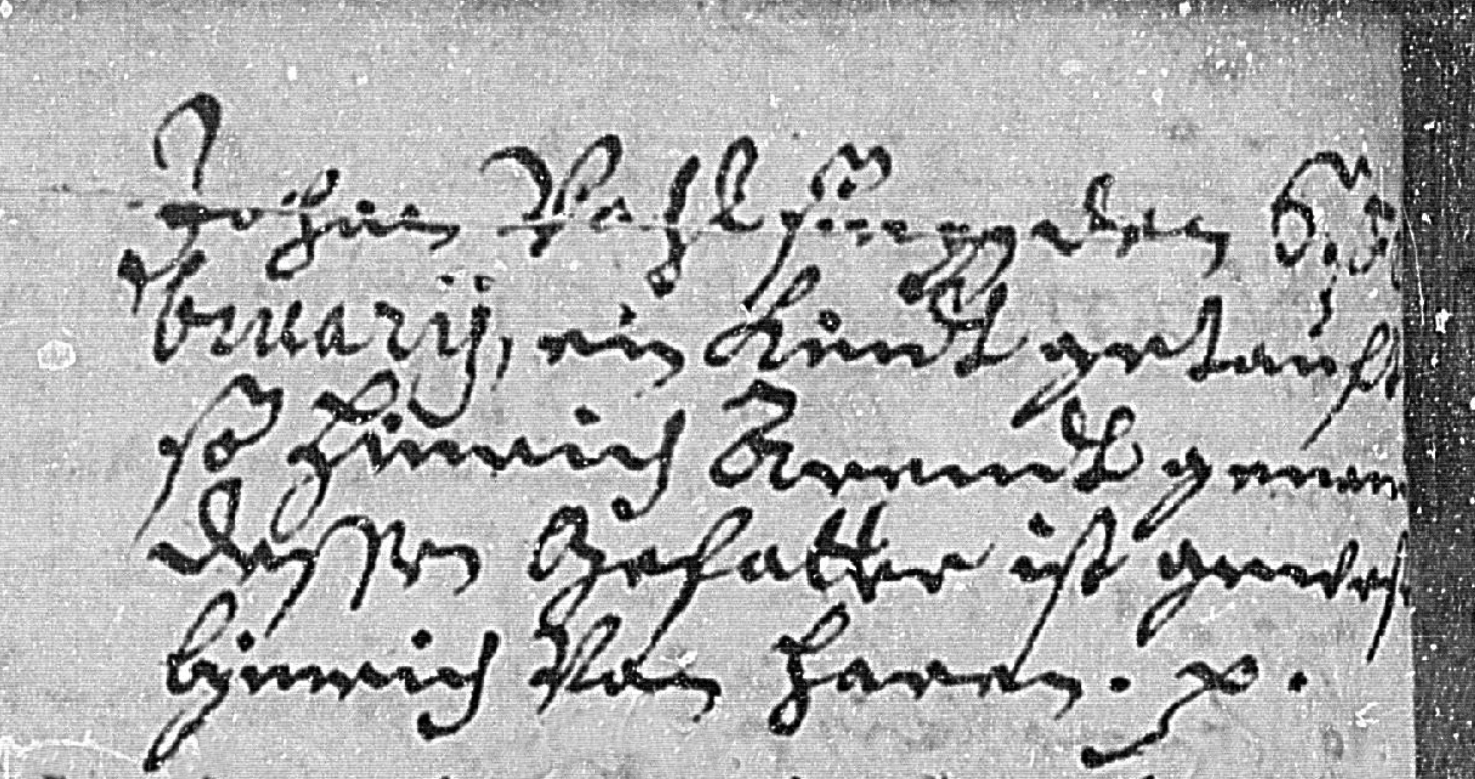 Johan Pohl den 6. Fe
bruarij, ein Kindt getauft
so Hinrich Arendt genan
dessen Gefatter ist gewes
Hinrich Von Haren.